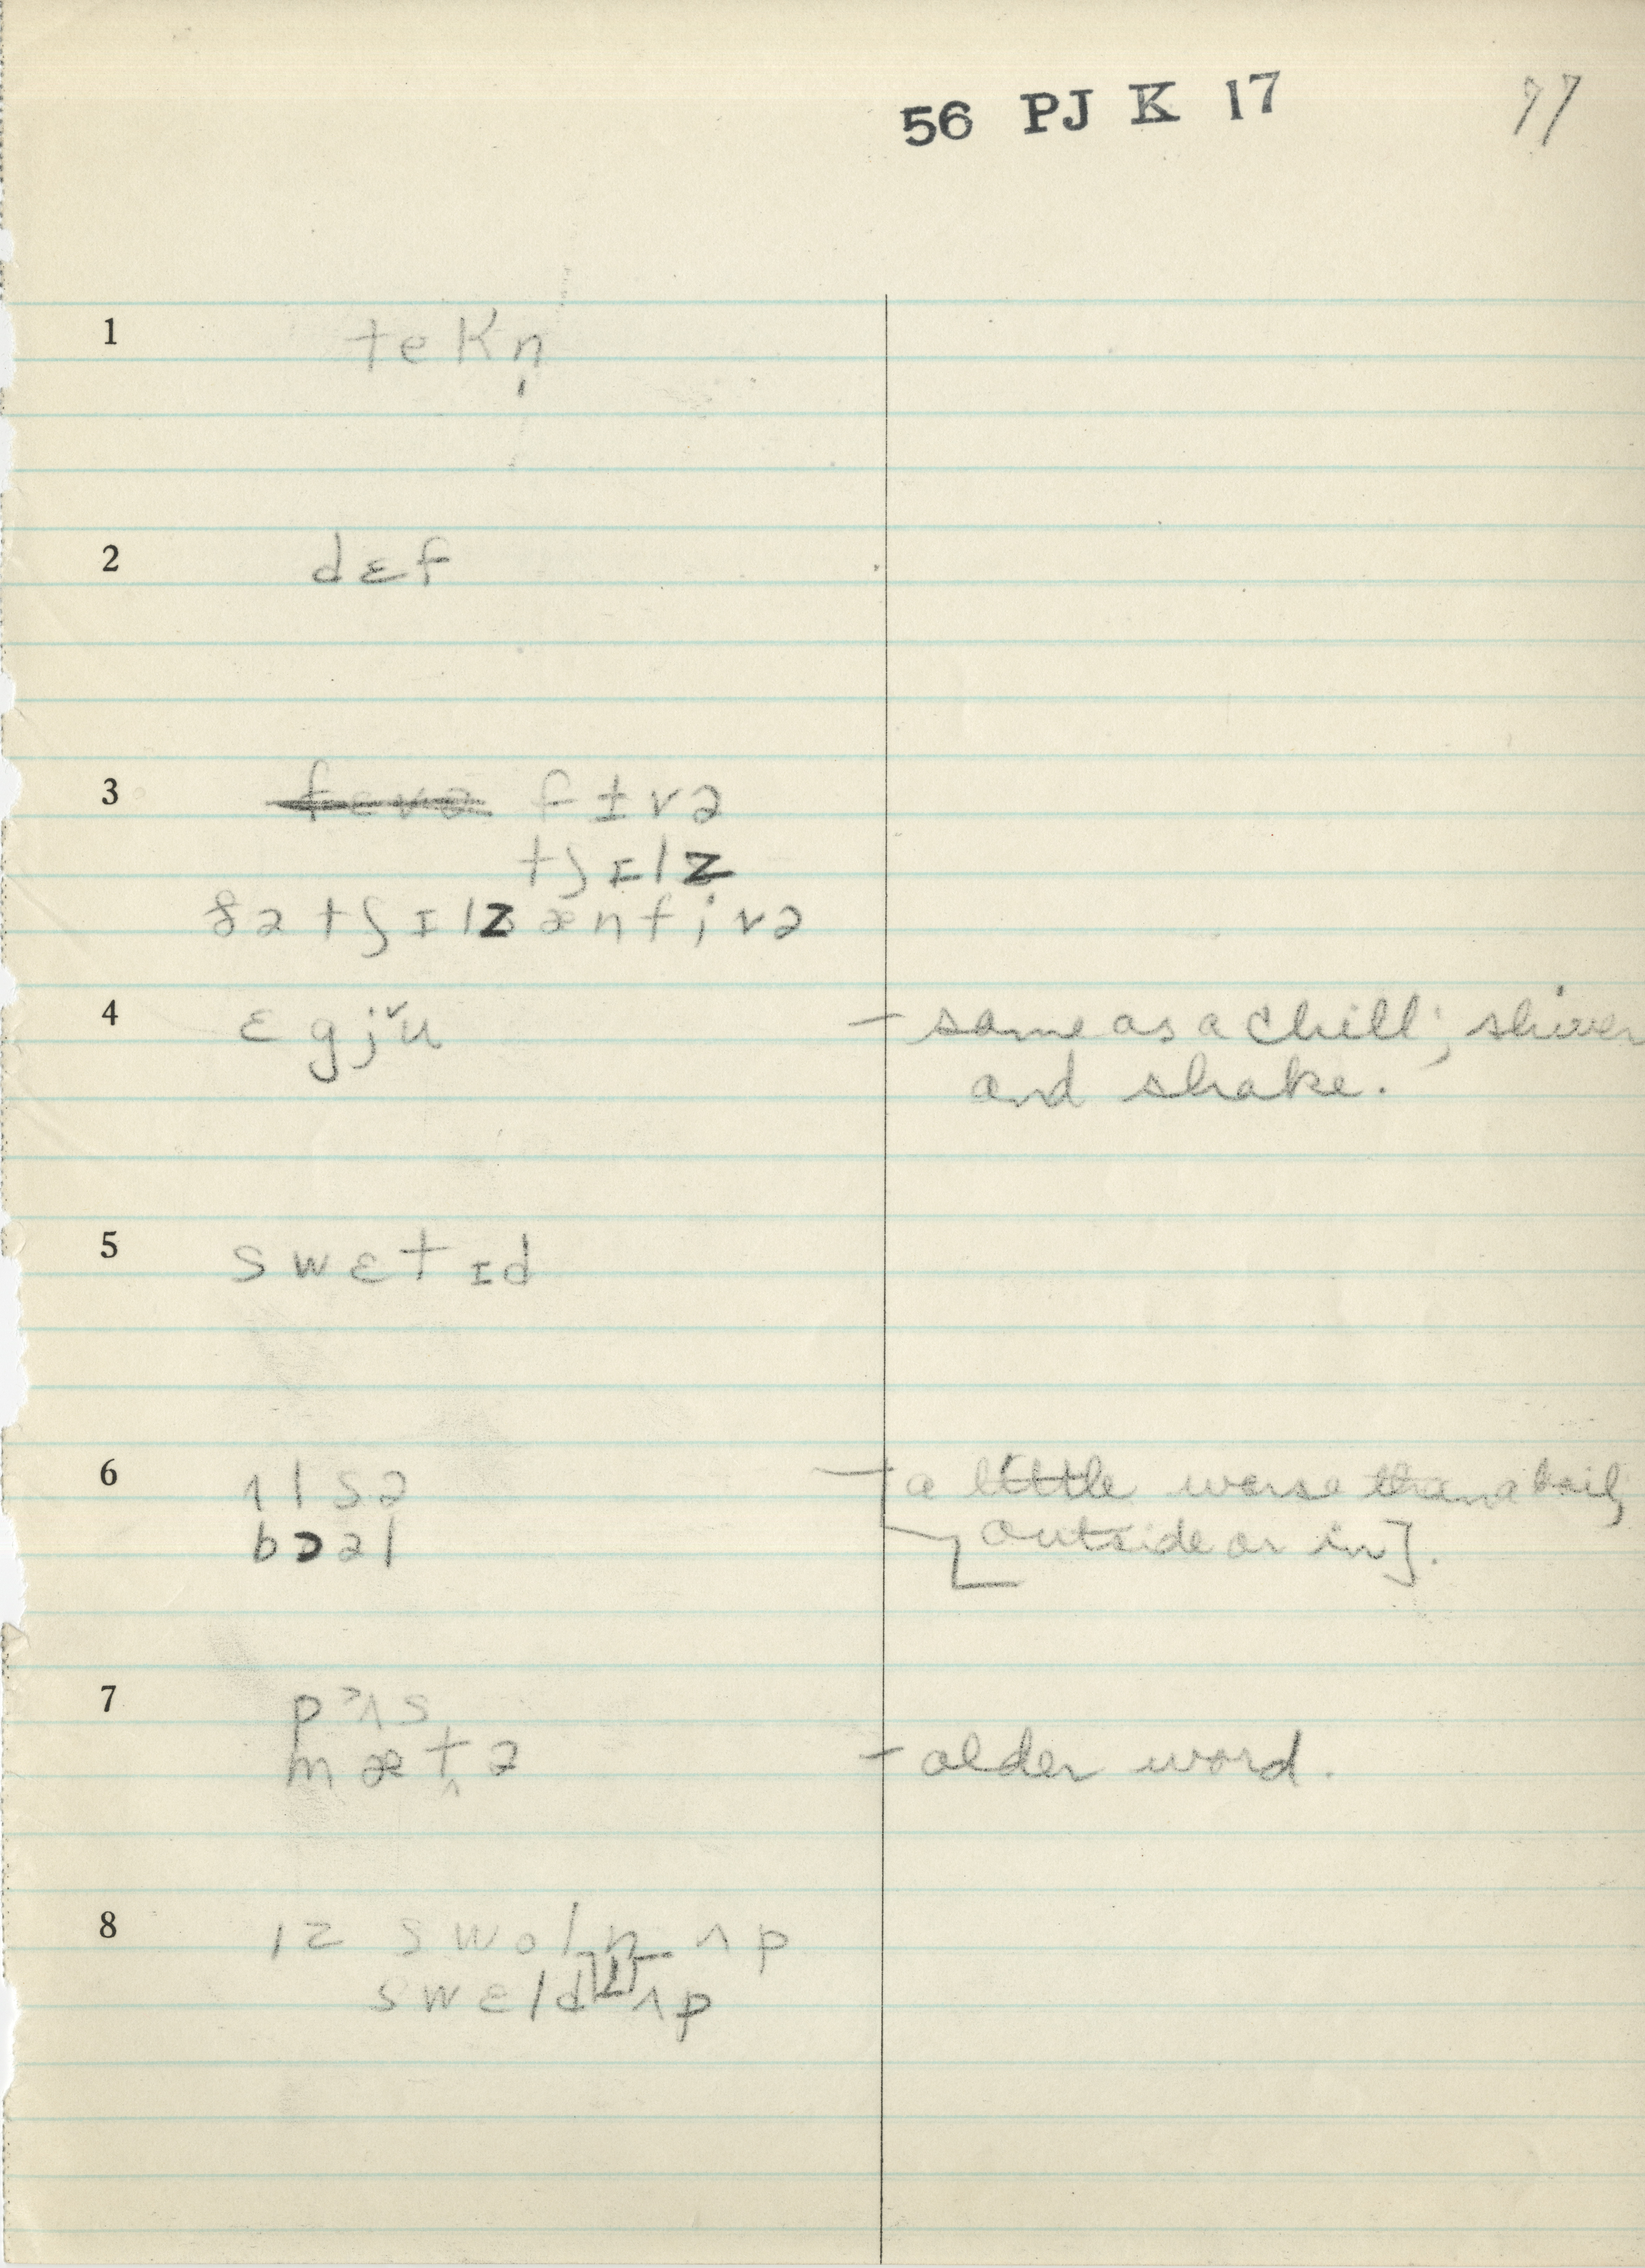 56 PJ K 17 77
1 tekn̩
2 dɛf
3 fevə fɨvə
tʃɪlz
ðə tʃɪlz æn fivə
4 ɛgjŭ - same as a chill; shiver
and shake.
5 swɛtɪd
6 ʌlsə - a little worse than a boil,
bɔəl outside or in].
7 pɜʌs
mæt̬ə - older word.
8 ɪz swoln ʌp
swɛld ʌp